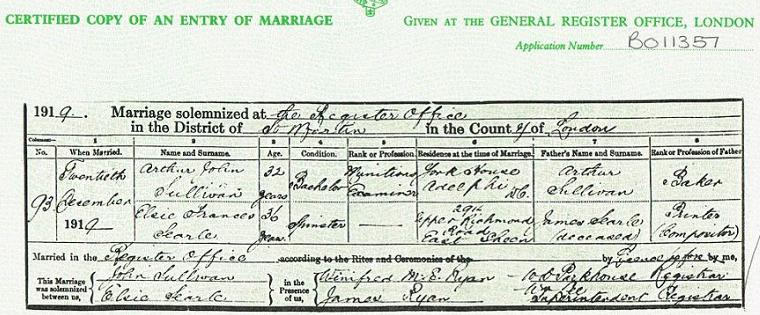 CERTIFIED COPY OF AN ENTRY OF MARRIAGE
GIVEN AT THE GENERAL REGISTER OFFICE, LONDON
Application Number B011357
1919. Marriage solemnized at the Register Office
in the District of St Martin in the County of London
Columns:— 1 2 3 4 5 6 7 8
No. When Married. Name and Surname. Age. Condition. Rank or Profession. Residence at the time of Marriage. Father's Name and Surname. Rank or Profession of Father
93 Twentieth December 1919
Arthur John Sullivan 32 years Bachelor Munitions Examiner York House Adelphi Arthur Sullivan Baker
Elsie Frances Searle 36 years Spinster —— 294 Upper Richmond Road East Sheen James Searle (deceased) Printer (Compositor)
Married in the Register Office according to the Rites and Ceremonies of the by before by me,
This Marriage was solemnized between us, John Sullivan
Elsie Searle
in the Presence of us, Winifred M. E. Ryan
James Ryan
Parkhouse Registrar
Superintendent Registrar